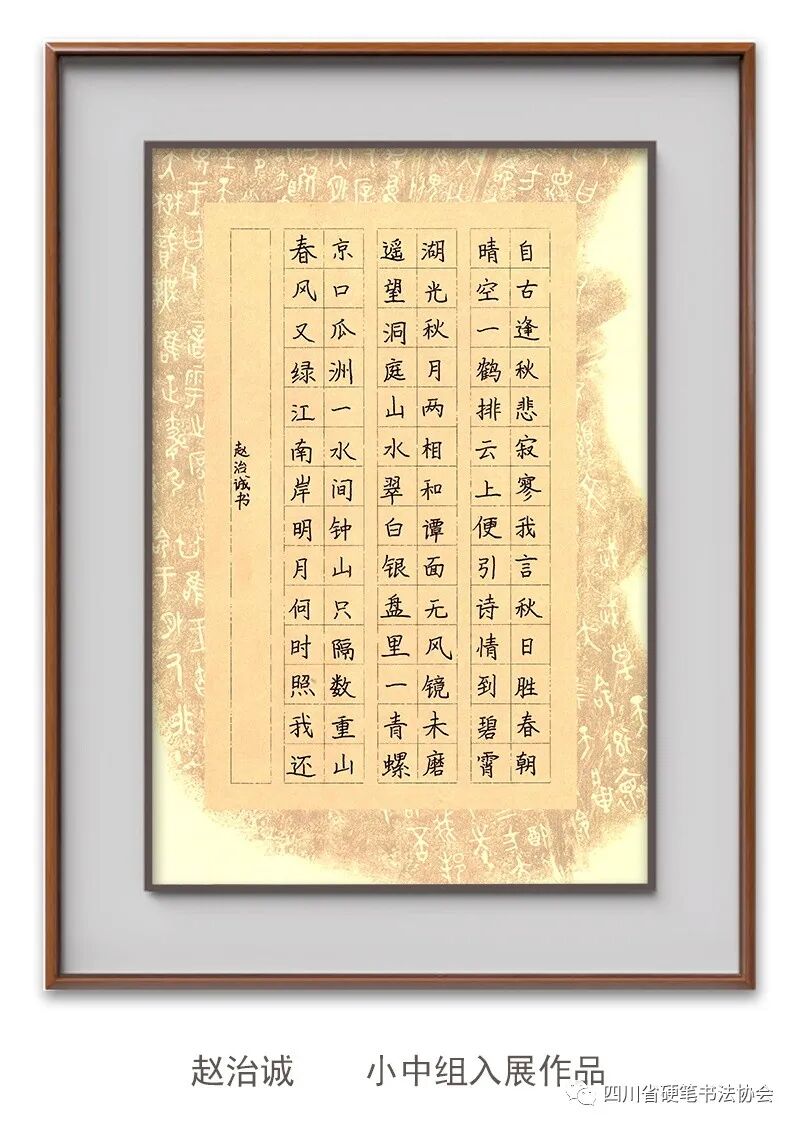 自古逢秋悲寂寥我言秋日胜春朝
晴空一鹤排云上便引诗情到碧霄
湖光秋月两相和谭面无风镜未磨
遥望洞庭山水翠白银盘里一青螺
京口瓜洲一水间钟山只隔数重山
春风又绿江南岸明月何时照我还
赵治诚书
赵治诚 小中组入展作品
四川省硬笔书法协会